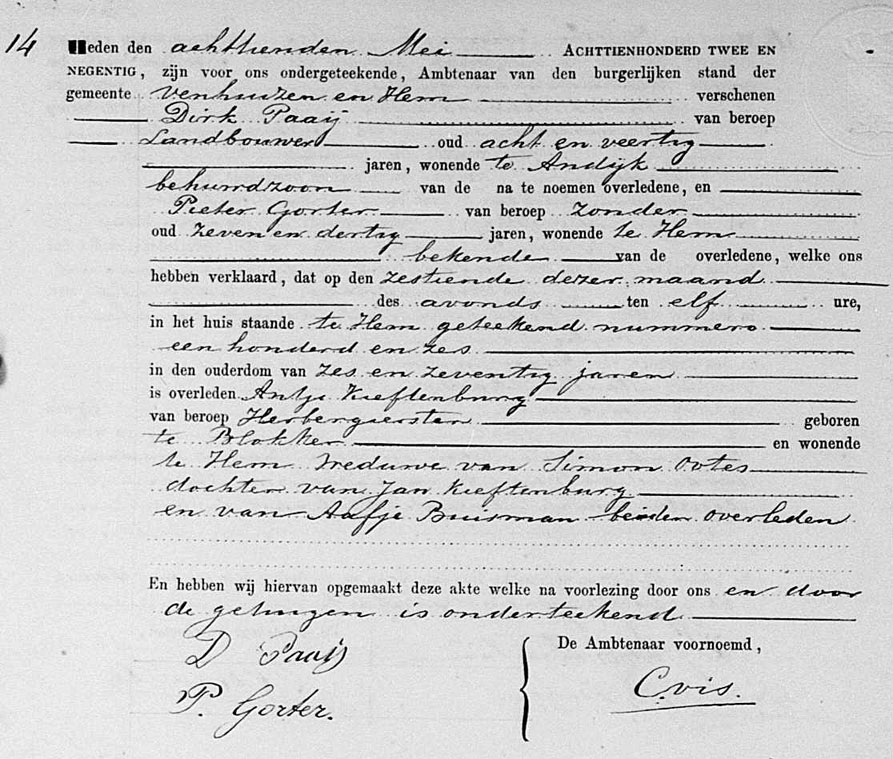 14 Heden den achttienden Mei ACHTTIENHONDERD TWEE EN
NEGENTIG, zijn voor ons ondergeteekende, Ambtenaar van den burgerlijken stand der
gemeente Venhuizen en Hem verschenen
Dirk Paaij van beroep
Landbouwer oud acht en veertig
jaren, wonende te Andijk
behuwdzoon van de na te noemen overledene, en
Pieter Gorter van beroep zonder
oud zeven en dertig jaren, wonende te Hem
bekende van de overledene, welke ons
hebben verklaard, dat op den zestiende dezer maand
des avonds ten elf ure,
in het huis staande te Hem geteekend nummero
een honderd en zes
in den ouderdom van zes en zeventig jaren
is overleden Antje Kieftenburg
van beroep Herbergierster geboren
te Blokker en wonende
te Hem Weduwe van Simon Ootes
dochter van Jan Kieftenburg
en van Aafje Buisman beiden overleden
En hebben wij hiervan opgemaakt deze akte welke na voorlezing door ons en door
de getuigen is onderteekend
De Ambtenaar voornoemd,
D Paaij
P. Gorter.
C. Vis.